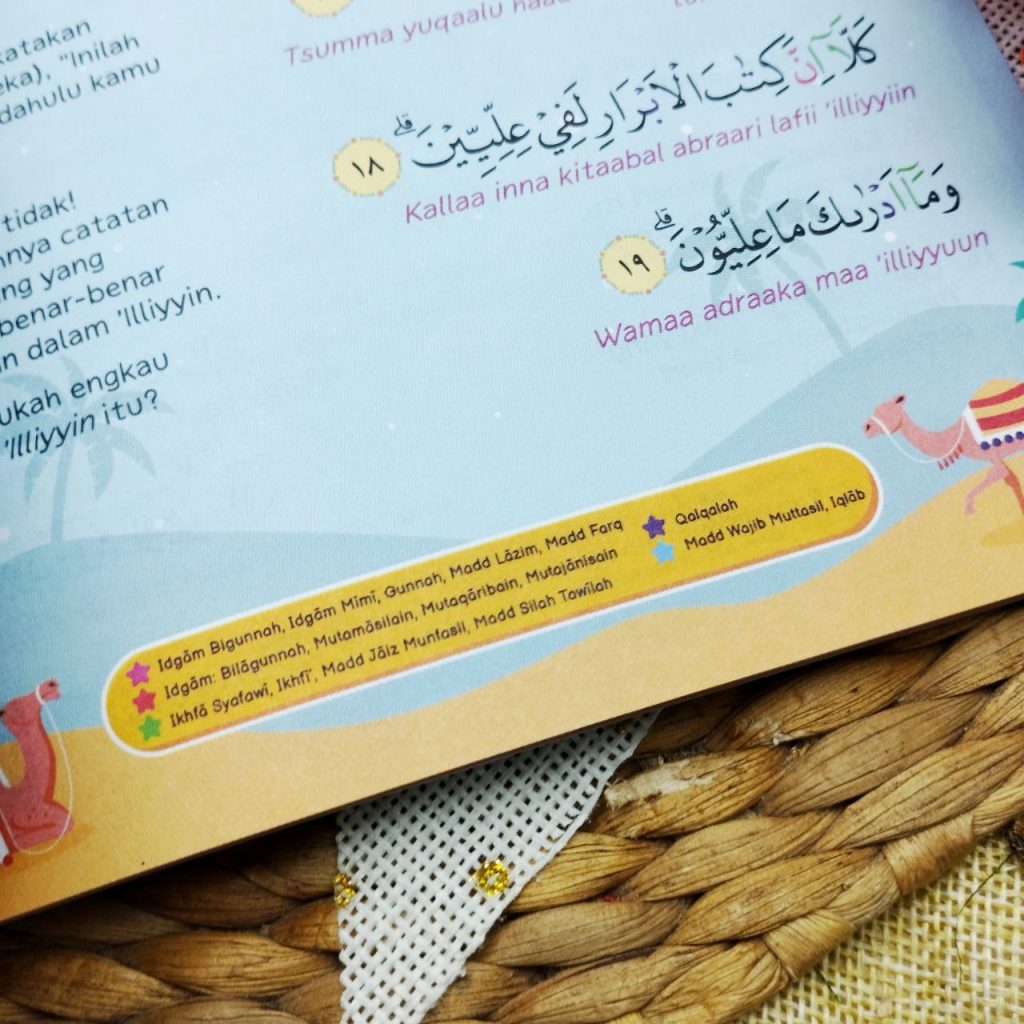 katakan
"Inilah
dahulu kamu
tidak!
catatan
yang
benar-benar
dalam 'Illiyyin.
engkau
'Illiyyin itu?
Tsumma yuqaalu
كَلَّآ اِنَّ كِتٰبَ الْاَبْرَارِ لَفِيْ عِلِّيِّيْنَۗ ١٨
Kallaa inna kitaabal abraari lafii 'illiyyiin
وَمَآ اَدْرٰىكَ مَا عِلِّيُّوْنَۗ ١٩
Wamaa adraaka maa 'illiyyuun
Idgām Bigunnah, Idgām Mimī, Gunnah, Madd Lāzim, Madd Farq
Idgām: Bilāgunnah, Mutamāsilain, Mutaqāribain, Mutajānisain
Ikhfā Syafawī, Ikhfī', Madd Jāiz Munfasil, Madd Silah Tawīlah
Qalqalah
Madd Wajib Muttasil, Iqlāb